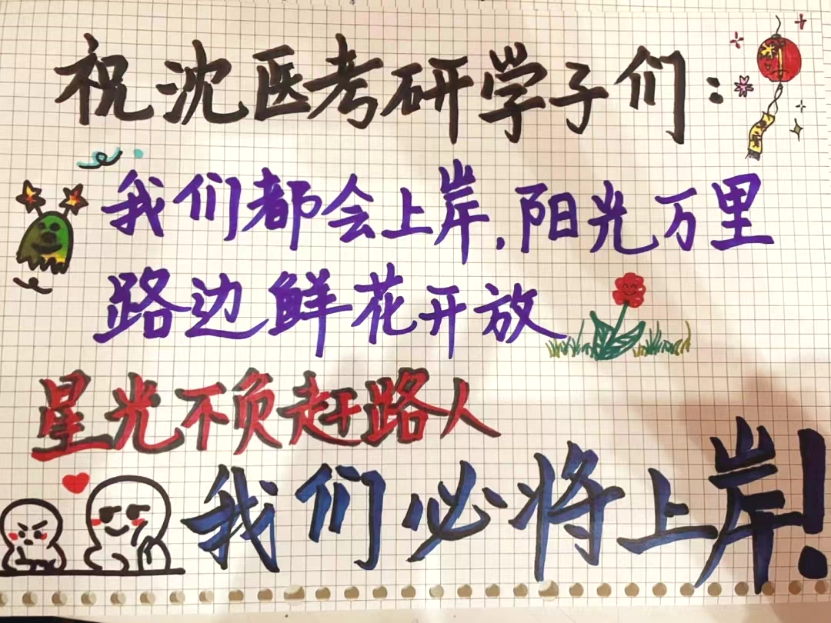 祝沈医考研学子们:
我们都会上岸,阳光万里
路边鲜花开放
星光不负赶路人
我们必将上岸!